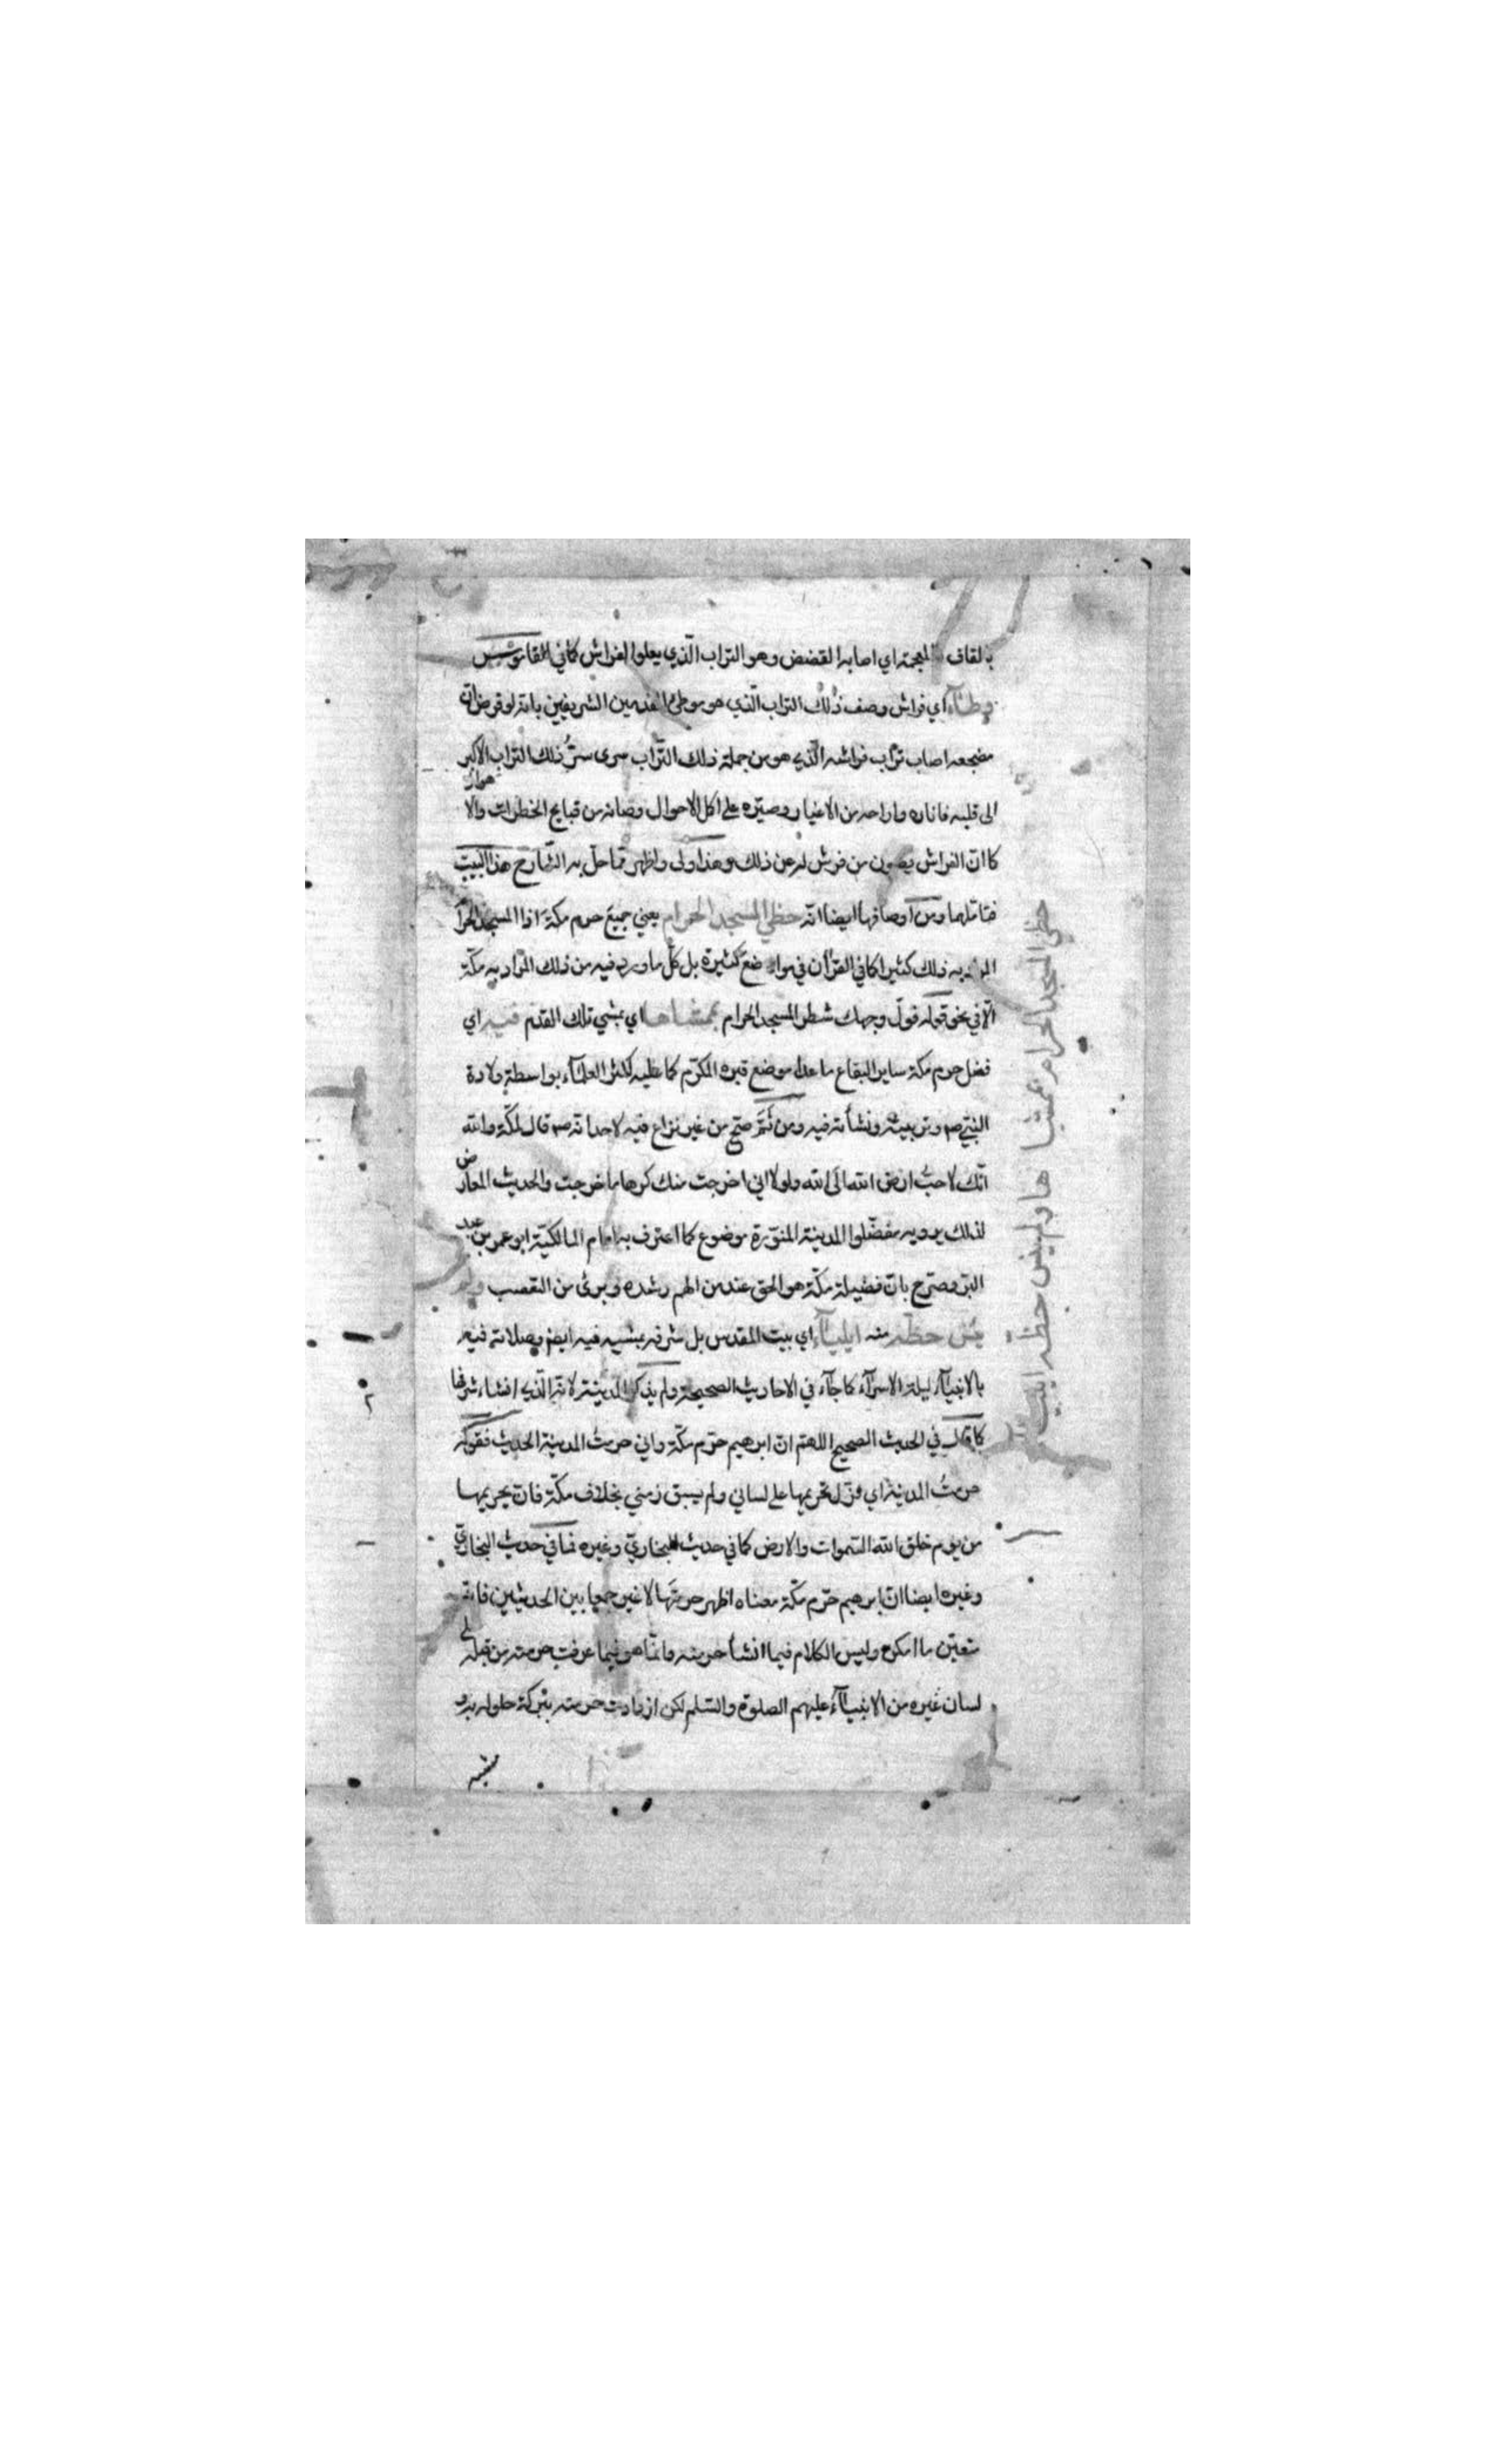 بالقاف المعجمة اي اصابه القضض وهو التراب الّذي يعلوا الفراش كما في القاموس
وطآء اي فراش وصف ذلك التراب الّذي هو موطئ القدمين الشريفين بانه لو فرض انّ
مضجعه اصاب تراب فراشه الّذي هو من جملة ذلك التّراب سرى سرّ ذلك التراب الاكبر
الى قلبه فاناره واراحه من الاغيار وصيّره على اكل الاحوال وصانه من قبايح الخطرات والا
هوآء
كما انّ الفراش يصون من فرش له عن ذلك وهذا اولى واظهر ممّا حلّ به الشّارح هذا البيت
فتاملها ومن اوصافها ايضا انّه حظي المسجد الحرام يعني جميع حرم مكة اذا المسجد الحرا
المراد به ذلك كثيرا كما في القرأن في مواضع كثيرة بل كلّ ما ورد فيه من ذلك المراد به مكّة
الّا في نحو قوله فولّ وجهك شطر المسجد الحرام بممشاها اي بمشي تلك القدم فيه اي
فضل حرم مكة ساير البقاع ما عدا موضع قبره المكرّم كما عليه اكثر العلمآء بواسطة ولادة
النبيّ صم وتربيته ونشأته فيه ومن ثَمَّ صحّ من غير نزاع فيه لاحد انه صم قال لمكّة والله
انّك لاحبّ ارض الله الى الله ولولا اني اخرجت منك كرها ما خرجت والحديث المعارض
لذلك يرويه مفضّلوا المدينة المنوّرة موضوع كما اعترف به امام المالكيّة ابو عمر بن عبد
البرّ وصرّح بانّ فضيلة مكّة هو الحق عند من الهم رشده وبرئ من التعصب ولم
ينس حظّه منه ايليآء اي بيت المقدس بل شرفه بمشيه فيه ايض وصلاته فيه
بالانبيآء ليلة الاسرآء كما جآء في الاحاديث الصحيحة ولم يذكر المدينة لانه الّذي انشاء شرفها
كما قال في الحديث الصحيح اللهمّ انّ ابرهيم حرّم مكّة واني حرمتُ المدينة الحديث فقوله
حرمتُ المدينة اي نزل تحريمها على لساني ولم يسبق زمني بخلاف مكّة فان تحريمها
من يوم خلق الله السّموات والارض كما في حديث البخاريّ وغيره فما في حديث البخاريّ
وغيره ايضا ان ابرهيم حرّم مكّة معناه اظهر حرمتَها لا غير جمعا بين الحديثين فانه
متعيّن ما امكن وليس الكلام فيما انشأ حرمته وانّما هو فيما عرفت حرمته من قبله على
لسان غيره من الانبيآء عليهم الصلوة والسّلم لكن ازدادت حرمته ببركة حلوله به و
مشيه
حظي المسجد الحرام بممشا ها ولم ينس حظه ايلياء
٢